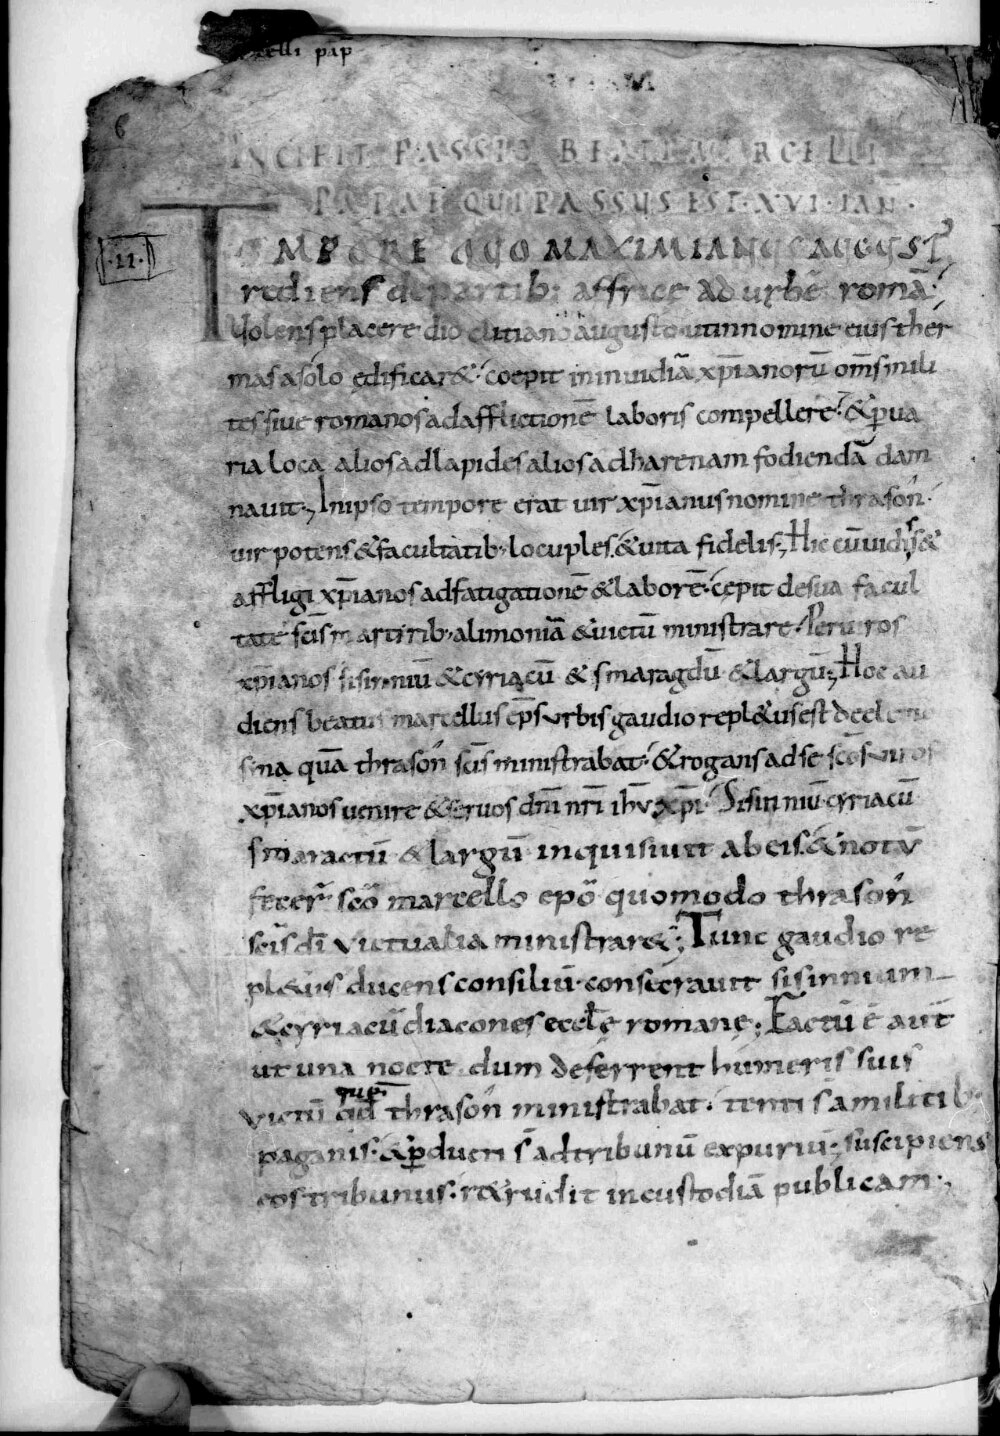 elli pap̄
6
INCIPIT PASSIO BEATI MARCELLI
PAPAE QUI PASSUS EST · XVI · IAN̄ ·
.11.
TEMPORE QUO MAXIMIANUS AUGUST
rediens de partib; affrice ad urbē romā;
Volens placere dioclitiano augusto. ut in nomine eius ther
mas a solo ędificar&. coepit in inuidiā xp̄ianorū om̄s mili
tes siue romanos ad afflictionē laboris compellere. & ꝑ ua
ria loca alios ad lapides alios ad harenam fodiendā dam
nauit; In ipso tempore erat uir xp̄ianus nomine thrason.
uir potens & facultatib; locuples. & uita fidelis; Hic cū uidis&
affligi xp̄ianos ad fatigationē & laborē. cępit de sua facul
tate sc̄is martirib; alimoniā & uictū ministrare. Per uiros
xp̄ianos sisinniū & cyriacū & smaragdū & largū; Hoc au
diens beatus marcellus ep̄s urbis gaudio repl&us est de elemo
sina quā thrason sc̄is ministrabat. & rogans ad se sc̄os uiros
xp̄ianos uenire & seruos dn̄i nr̄i ihū xp̄i. Sisinniū cyriacū
smaractū & largū inquisiuit ab eis. & notū
fecer̄ sc̄o marcello ep̄o quomodo thrason
sc̄is dī uictualia ministrar&; Tunc gaudio re
pl&us ducens consiliū. consecrauit sisinnium
& cyriacū diacones eccłę romanę; Factū ē aut̄
ut una nocte dum deferrent humeris suis
que
victū qd̄ thrason ministrabat. tenti s̄ a militib;
paganis. & ꝑducti s̄ ad tribunū expuriū; suscipiens
eos tribunus. r&rudit in custodiā publicam;